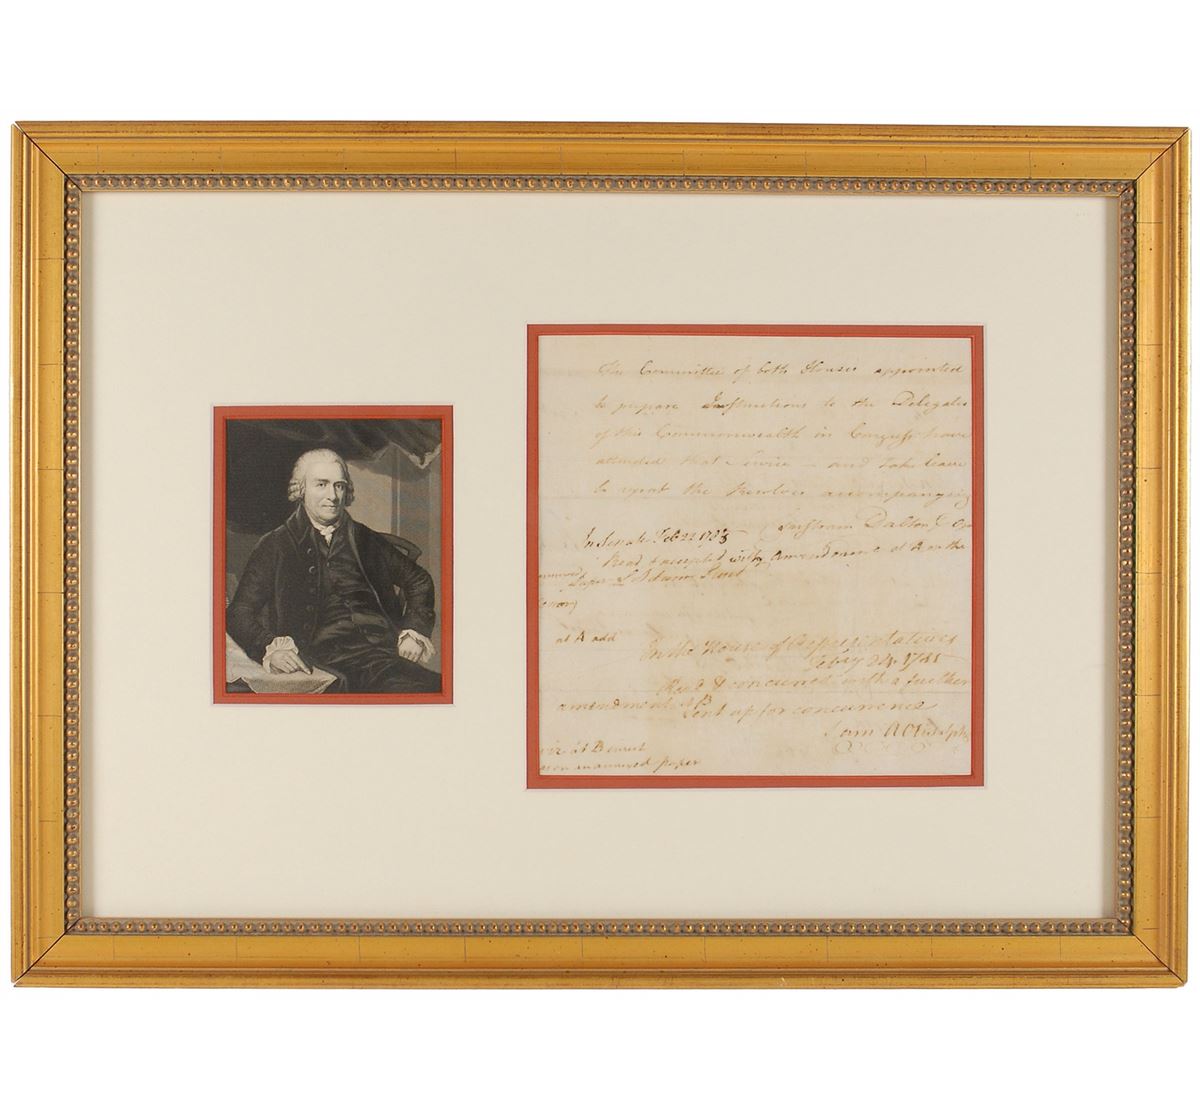 The Committee of both Houses appointed
to prepare Instructions to the Delegates
of this Commonwealth in Congress have
attended that Service — and take leave
to report the Resolves accompanying
Tristram Dalton
In Senate Feb 22 1785
Read & accepted with Amendment at A on the
paper S Adams Presdt
at A add
In the House of Representatives
Feby 24. 1785
Read & concurred with a further
amendment at B
Sent up for concurrence
Sam A Otis
viz at B insert
as on annexed paper